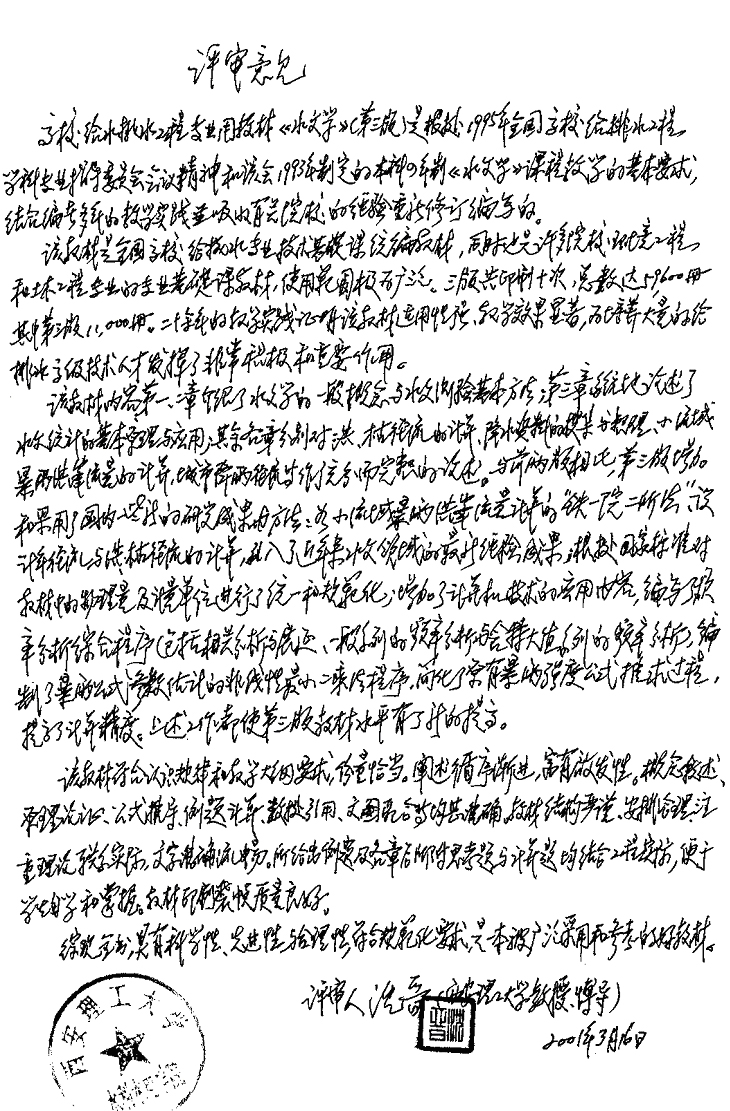 评审意见
高校给水排水工程专业用教材《水文学》(第三版)是根据1995年全国高校给排水工程
学科专业指导委员会会议精神和该会1993年制定的本科四年制《水文学》课程教学的基本要求,
结合编者多年的教学实践并吸收有关院校的经验重新修订编写的。
该教材是全国高校给排水专业技术基础课统编教材,同时也是许多院校环境工程
和土木工程专业的专业基础课教材,使用范围极为广泛。三版共印制十次,总数达59,600册
其中第三版11,000册。二十余年的教学实践证明该教材适用性强、教学效果显著,为培养大量的给
排水高级技术人才发挥了非常积极和重要作用。
该教材内容第一、二章介绍了水文学的一般概念与水文测验基本方法,第三章系统地论述了
水文统计的基本原理与应用,其余各章分别对洪、枯径流的计算、降水资料的收集与整理、小流域
暴雨洪峰流量的计算,城市降雨径流等作了充分而完整的论述。与前两版相比,第三版增加
和采用了国内一些新的研究成果与方法:为小流域暴雨洪峰流量计算的“铁一院二所法”,设
计年径流与洪枯径流的计算,融入了近年来水文领域的最新经验成果,根据国家标准对
教材中的物理量及计量单位进行了统一和规范化,增加了计算机技术的应用内容,编写了频
率分析综合程序(包括相关分析与展延、一般系列的频率分析与含特大值系列的频率分析),编
制了暴雨公式参数估计的非线性最小二乘法程序,简化了常有暴雨强度公式推求过程,
提高了计算精度。上述工作都使第三版教材水平有了新的提高。
该教材符合认识规律和教学大纲要求,份量恰当。阐述循序渐进,富有启发性。概念叙述、
原理论证、公式推导、例题计算、数据引用、文图配合等均甚准确。教材结构严谨、安排合理,注
重理论联系实际,文字准确流畅。所给出例题及各章后所附思考题与计算题均结合工程实际,便于
学生自学和掌握。教材印制装帧质量良好。
综观全书,具有科学性、先进性与合理性,符合规范化要求,是本被广泛采用和参考的好教材。
评审人 沈晋(西安理工大学教授、博导)
2001年3月16日
西安理工大学
沈晋